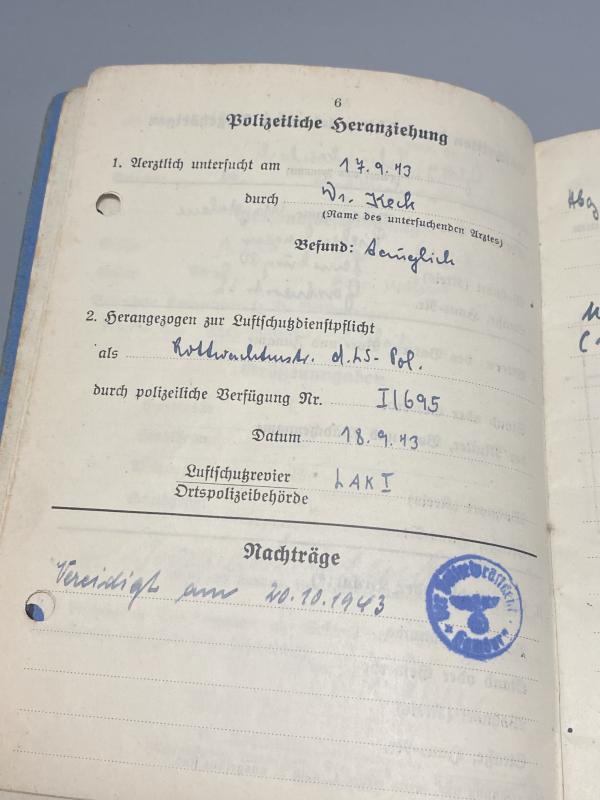 6
Polizeiliche Heranziehung
1. Aerztlich untersucht am 17.9.43
durch Dr. Keck
(Name des untersuchenden Arztes)
Befund: tauglich
2. Herangezogen zur Luftschutzdienstpflicht
als Rottwachtmstr. d. LS-Pol.
durch polizeiliche Verfügung Nr. I/695
Datum 18.9.43
Luftschutzrevier LAK I
Ortspolizeibehörde
Nachträge
Vereidigt am 20.10.1943
Der Polizeipräsident
Hamburg